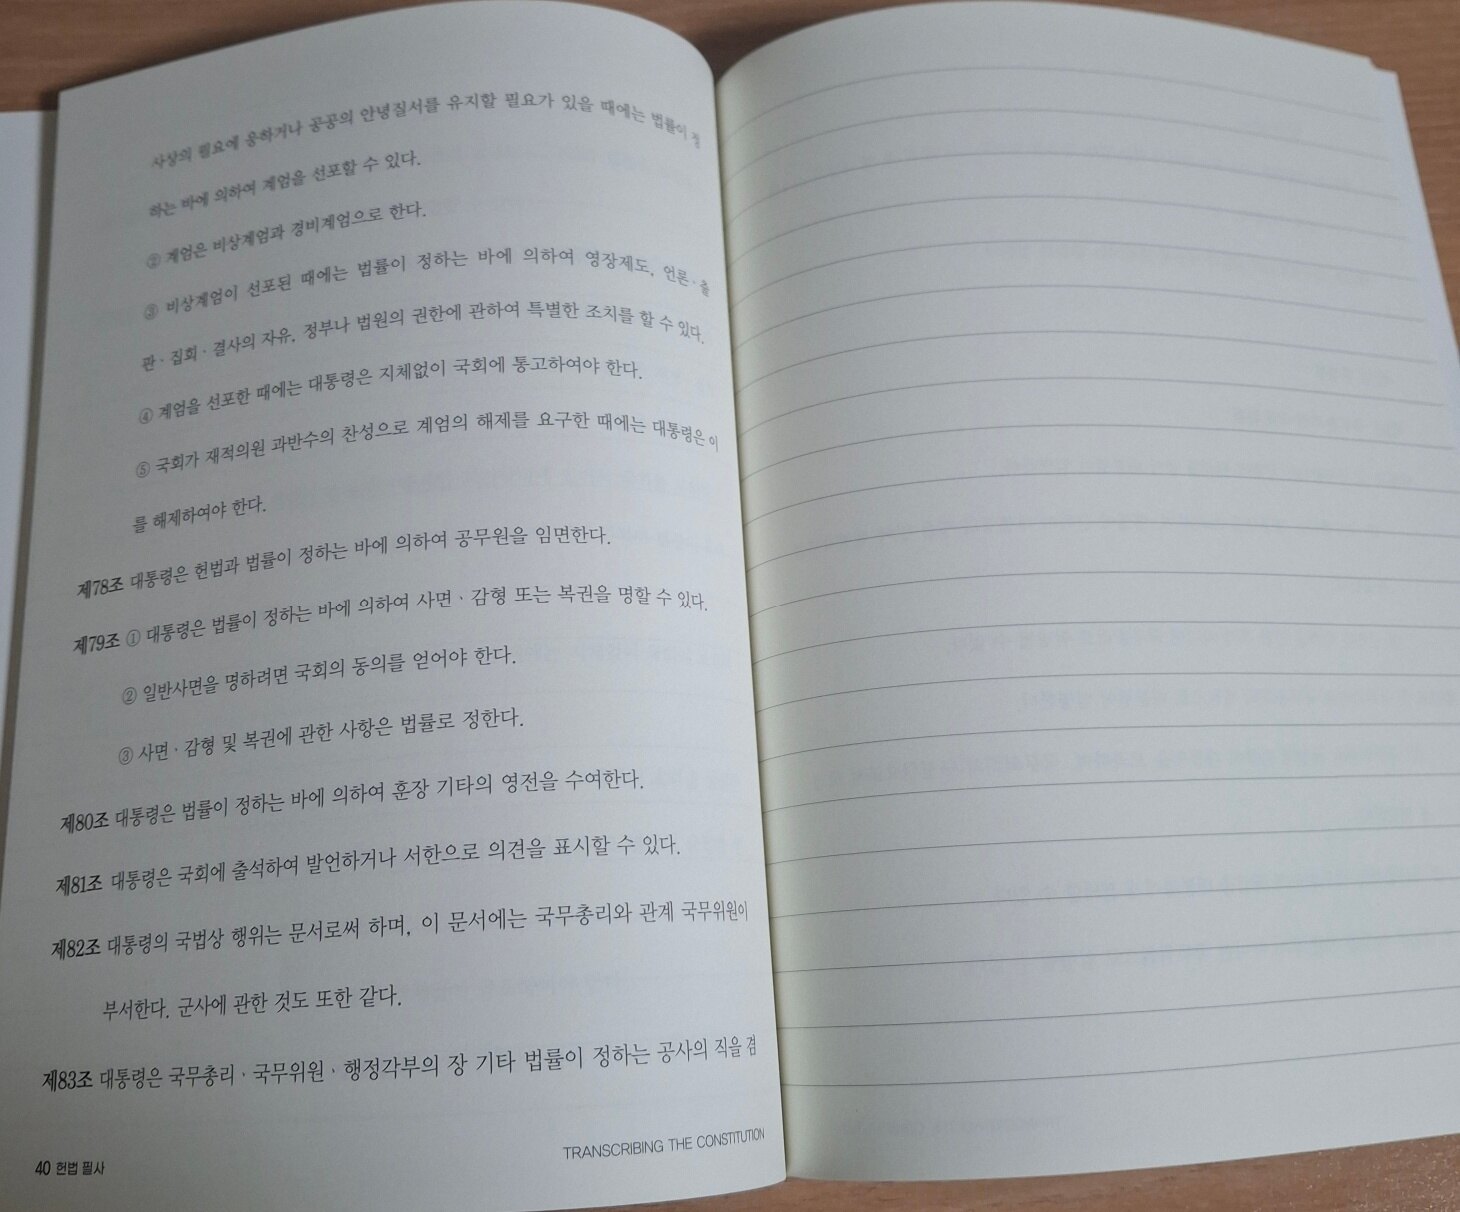 사상의 필요에 응하거나 공공의 안녕질서를 유지할 필요가 있을 때에는 법률이 정
하는 바에 의하여 계엄을 선포할 수 있다.
② 계엄은 비상계엄과 경비계엄으로 한다.
③ 비상계엄이 선포된 때에는 법률이 정하는 바에 의하여 영장제도, 언론·출
판·집회·결사의 자유, 정부나 법원의 권한에 관하여 특별한 조치를 할 수 있다.
④ 계엄을 선포한 때에는 대통령은 지체없이 국회에 통고하여야 한다.
⑤ 국회가 재적의원 과반수의 찬성으로 계엄의 해제를 요구한 때에는 대통령은 이
를 해제하여야 한다.
제78조 대통령은 헌법과 법률이 정하는 바에 의하여 공무원을 임면한다.
제79조 ① 대통령은 법률이 정하는 바에 의하여 사면·감형 또는 복권을 명할 수 있다.
② 일반사면을 명하려면 국회의 동의를 얻어야 한다.
③ 사면·감형 및 복권에 관한 사항은 법률로 정한다.
제80조 대통령은 법률이 정하는 바에 의하여 훈장 기타의 영전을 수여한다.
제81조 대통령은 국회에 출석하여 발언하거나 서한으로 의견을 표시할 수 있다.
제82조 대통령의 국법상 행위는 문서로써 하며, 이 문서에는 국무총리와 관계 국무위원이
부서한다. 군사에 관한 것도 또한 같다.
제83조 대통령은 국무총리·국무위원·행정각부의 장 기타 법률이 정하는 공사의 직을 겸
40 헌법 필사
TRANSCRIBING THE CONSTITUTION